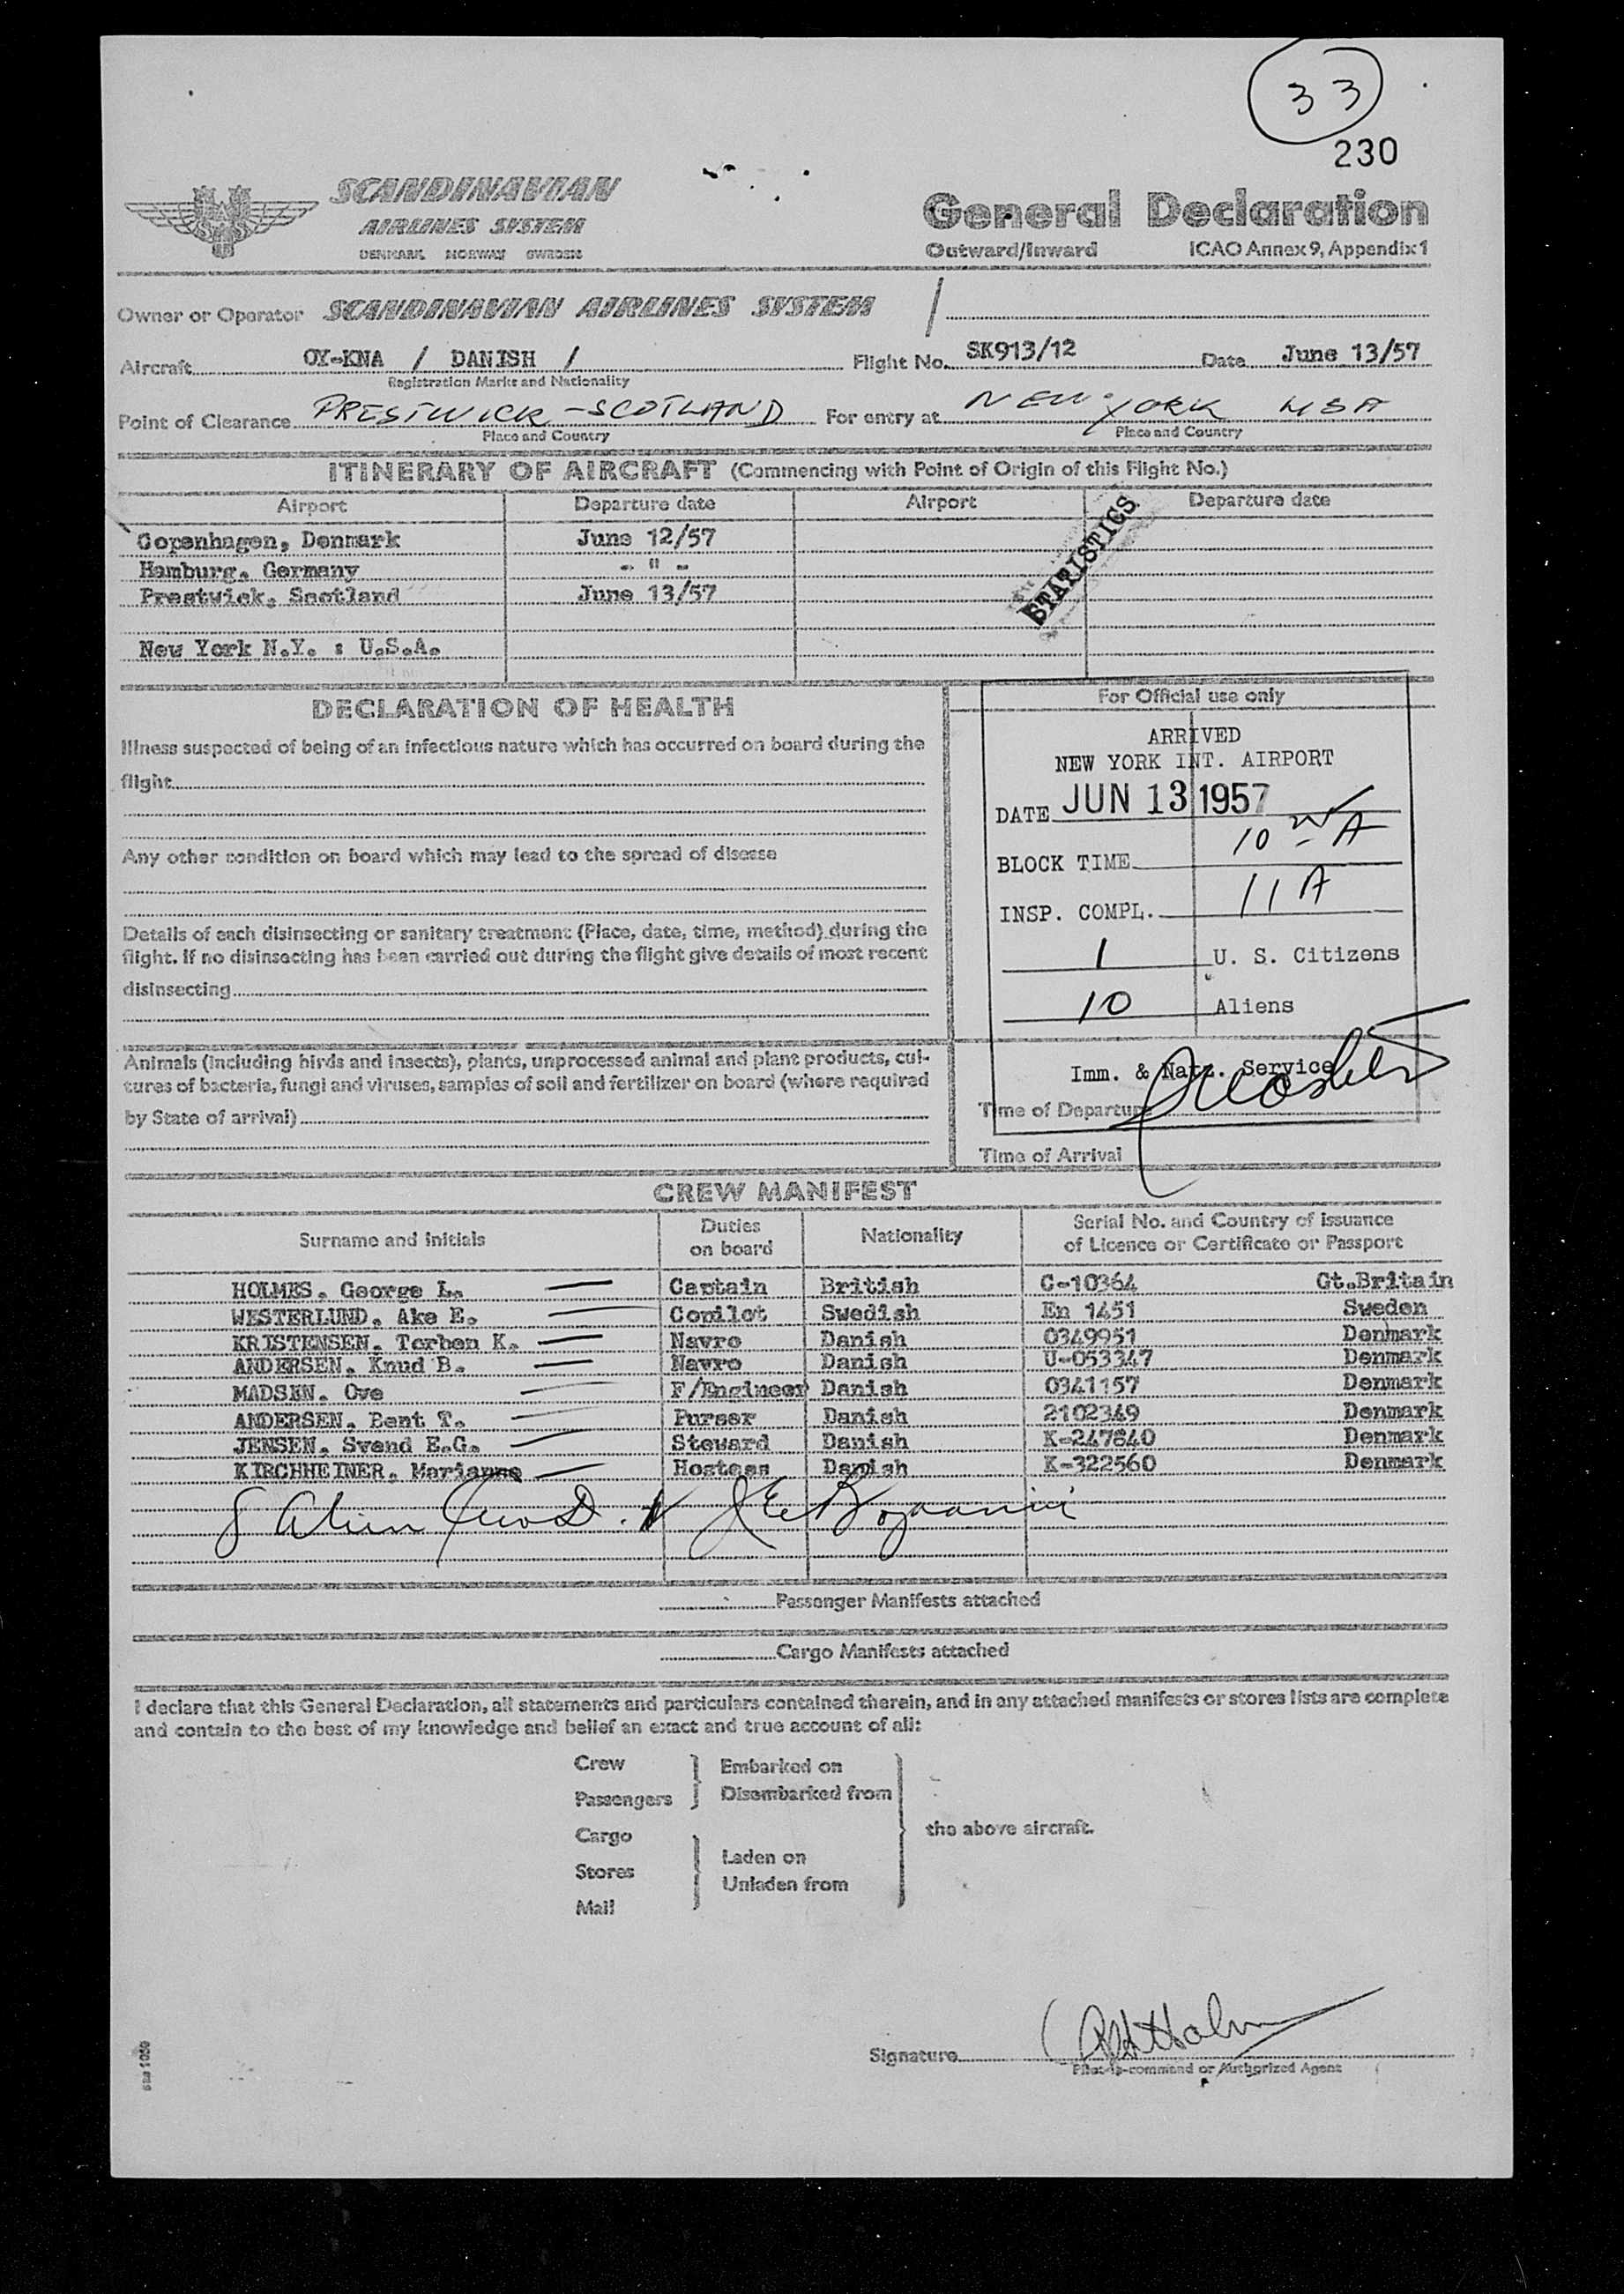 33
230
SCANDINAVIAN
AIRLINES SYSTEM
DENMARK NORWAY SWEDEN
General Declaration
Outward/Inward ICAO Annex 9, Appendix 1
Owner or Operator SCANDINAVIAN AIRLINES SYSTEM
Aircraft OY-KNA / DANISH / Flight No. SK913/12 Date June 13/57
Registration Marks and Nationality
Point of Clearance PRESTWICK - SCOTLAND For entry at NEW YORK USA
Place and Country Place and Country
ITINERARY OF AIRCRAFT (Commencing with Point of Origin of this Flight No.)
Airport Departure date Airport Departure date
Copenhagen, Denmark June 12/57
Hamburg, Germany - " -
Prestwick, Scotland June 13/57
STATISTICS
New York N.Y. : U.S.A.
DECLARATION OF HEALTH
Illness suspected of being of an infectious nature which has occurred on board during the
flight
Any other condition on board which may lead to the spread of disease
Details of each disinsecting or sanitary treatment (Place, date, time, method) during the
flight. If no disinsecting has been carried out during the flight give details of most recent
disinsecting
Animals (including birds and insects), plants, unprocessed animal and plant products, cul-
tures of bacteria, fungi and viruses, samples of soil and fertilizer on board (where required
by State of arrival)
For Official use only
ARRIVED
NEW YORK INT. AIRPORT
DATE JUN 13 1957
BLOCK TIME 10 A
INSP. COMPL. 11 A
1 U. S. Citizens
10 Aliens
Imm. & Natz. Service
Time of Departure
Time of Arrival
CREW MANIFEST
Surname and initials Duties on board Nationality Serial No. and Country of issuance of Licence or Certificate or Passport
HOLMES. George L. Captain British C-10364 Gt.Britain
WESTERLUND. Ake E. Copilot Swedish En 1451 Sweden
KRISTENSEN. Torben K. Navro Danish 0349951 Denmark
ANDERSEN. Knud B. Navro Danish U-053347 Denmark
MADSEN. Ove F/Engineer Danish 0341157 Denmark
ANDERSEN. Bent T. Purser Danish 2102349 Denmark
JENSEN. Svend E.G. Steward Danish K-247840 Denmark
KIRCHHEINER. Marianne Hostess Danish K-322560 Denmark
8 Alien
Passenger Manifests attached
Cargo Manifests attached
I declare that this General Declaration, all statements and particulars contained therein, and in any attached manifests or stores lists are complete
and contain to the best of my knowledge and belief an exact and true account of all:
Crew Embarked on
Passengers Disembarked from
Cargo the above aircraft.
Laden on
Stores
Unladen from
Mail
Signature
Pilot-in-command or Authorized Agent
sas 1059